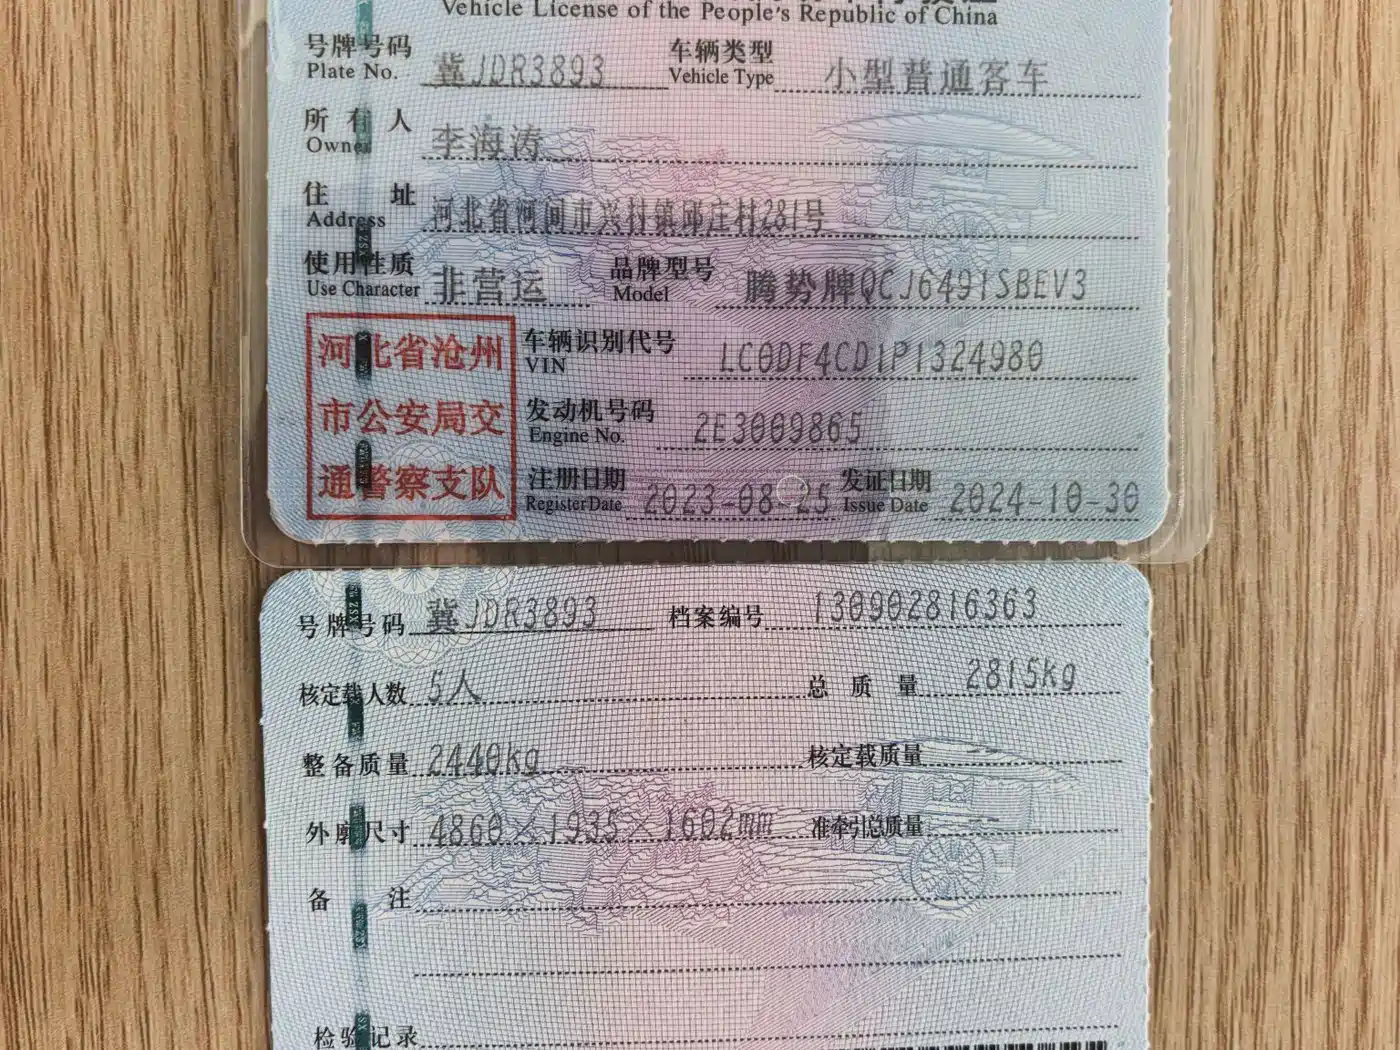 Vehicle License of the People's Republic of China
号牌号码 冀JDR3893 车辆类型 小型普通客车
Plate No. Vehicle Type
所有人 李海涛
Owner
住址 河北省河间市兴村镇邱庄村281号
Address
使用性质 非营运 品牌型号 腾势牌QCJ6491SBEV3
Use Character Model
河北省沧州
市公安局交
通警察支队
车辆识别代号 LC0DF4CD1P1324980
VIN
发动机号码 2E3009865
Engine No.
注册日期 2023-08-25 发证日期 2024-10-30
Register Date Issue Date
号牌号码 冀JDR3893 档案编号 130902816363
核定载人数 5人 总质量 2815kg
整备质量 2440kg 核定载质量
外廓尺寸 4860×1935×1602mm 准牵引总质量
备注
检验记录